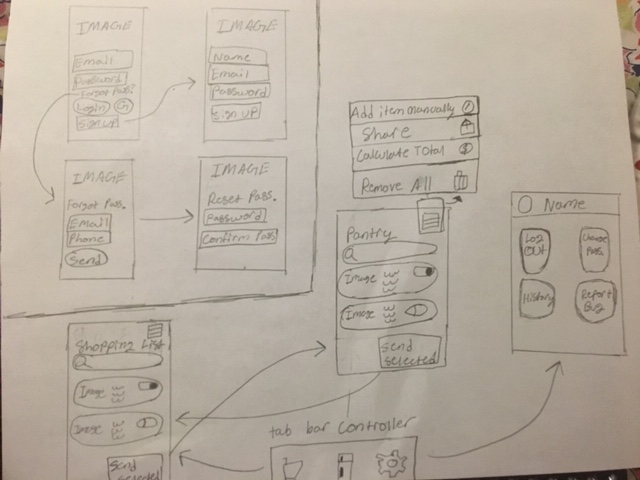 IMAGE
Email
Password
Forgot Pass?
Login
G
Sign up
IMAGE
Name
Email
Password
Sign UP
IMAGE
Forgot Pass.
Email
Phone
Send
IMAGE
Reset Pass.
Password
Confirm Pass
Add item manually
Share
Calculate Total $
Remove All
Pantry
Image
Image
Send
Selected
Name
Log
OUT
Change
Pass
History
Report
Bug
Shopping List
Image
Image
Send
Selected
tab bar Controller